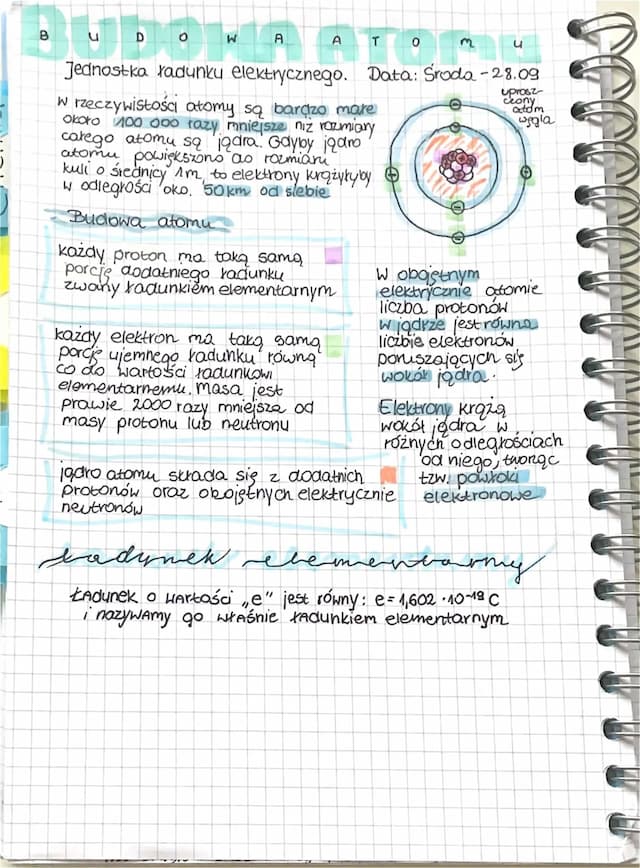 BUDOWA ATOMU
Jednostka ładunku elektrycznego. Data: Środa - 28.09
W rzeczywistości atomy są bardzo małe
około 100 000 razy mniejsze niż rozmiary
całego atomu są jądra. Gdyby jądro
atomu powiększono do rozmiaru
kuli o średnicy 1m, to elektrony krążyłyby
w odległości oko. 50km od siebie
uprosz-
czony
atom
węgla
Budowa atomu
każdy proton ma taką samą
porcję dodatniego ładunku
zwany ładunkiem elementarnym
każdy elektron ma taką samą
porcję ujemnego ładunku równą
co do wartości ładunkowi
elementarnemu. Masa jest
prawie 2000 razy mniejsza od
masy protonu lub neutronu
jądro atomu składa się z dodatnich
protonów oraz obojętnych elektrycznie
neutronów
W obojętnym
elektrycznie atomie
liczba protonów
w jądrze jest równa
liczbie elektronów
poruszających się
wokół jądra.
Elektrony krążą
wokół jądra w
różnych odległościach
od niego, tworząc
tzw. powłoki
elektronowe
ładunek elementarny
Ładunek o wartości „e" jest równy: e = 1,602 · 10⁻¹⁹ C
i nazywamy go właśnie ładunkiem elementarnym